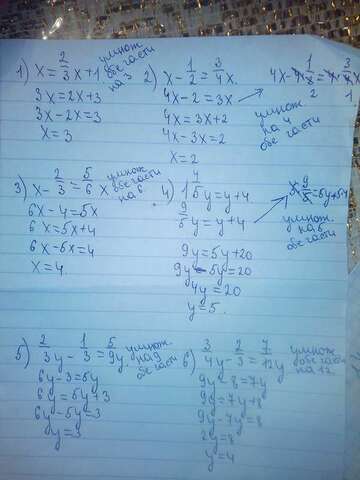 1) x = 2/3 x + 1 умнож. обе части на 3
3x = 2x + 3
3x - 2x = 3
x = 3
2) x - 1/2 = 3/4 x.
4x - 2 = 3x
4x = 3x + 2
4x - 3x = 2
x = 2
умнож. на 4 обе части
3) x - 2/3 = 5/6 x умнож. обе части на 6
6x - 4 = 5x
6x = 5x + 4
6x - 5x = 4
x = 4.
4) 1 4/5 y = y + 4.
9/5 y = y + 4
9y = 5y + 20
9y - 5y = 20
4y = 20
y = 5.
умнож. на 5 обе части
5) 2/3 y - 1/3 = 5/9 y. умнож. на 9 обе части
6y - 3 = 5y
6y = 5y + 3
6y - 5y = 3
y = 3
6) 3/4 y - 2/3 = 7/12 y умнож. обе части на 12.
9y - 8 = 7y
9y = 7y + 8
9y - 7y = 8
2y = 8
y = 4